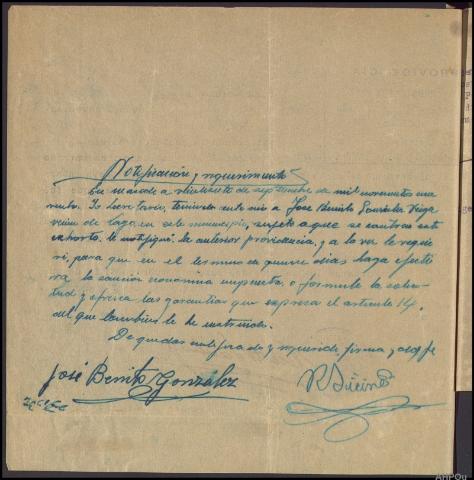 Notificación y requerimiento
En Maside a veintisiete de septiembre de mil novecientos cua
renta. Yo Secretario, teniendo ante mi a Jose Benito Gonzalez Veiga
vecino de Lago en este municipio, sujeto a que se contrae este
exhorto. le notifiqué la anterior providencia, y a la vez le reque
rí, para que en el termino de quince dias haga efecti
va la sanción económica impuesta, o formule la solici
tud y ofrezca las garantias que expresa el articulo 14.
del que tambien le he instruido.
De quedar notificado y requerido firma, y doy fe
José Benito González
Veiga
AHPOu